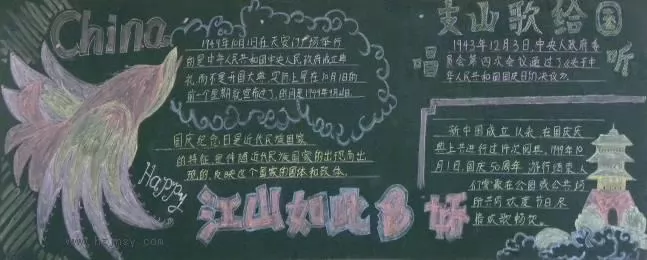 China
1949年10月1日在天安门广场举行
的是中华人民共和国中央人民政府成立典
礼,而不是开国大典.实际上早在10月1日的
前一个星期就宣布了
国庆纪念日是近代民族国家
的特征,是伴随近代民族国家的出现而出
现的,反映这个国家的国体和政体.
Happy
江山如此多娇
支山歌给国
唱 听
1943年12月3日,中央人民政府委
员会第四次会议通过了《关于中
华人民共和国国庆日的决议》.
新中国成立以来,在国庆庆
典上共进行过 次阅兵.1999年10
月1日,国庆50周年 游行结束,人
们 在公园或公共场
所共同欢度节日,尽
情欢歌畅饮.